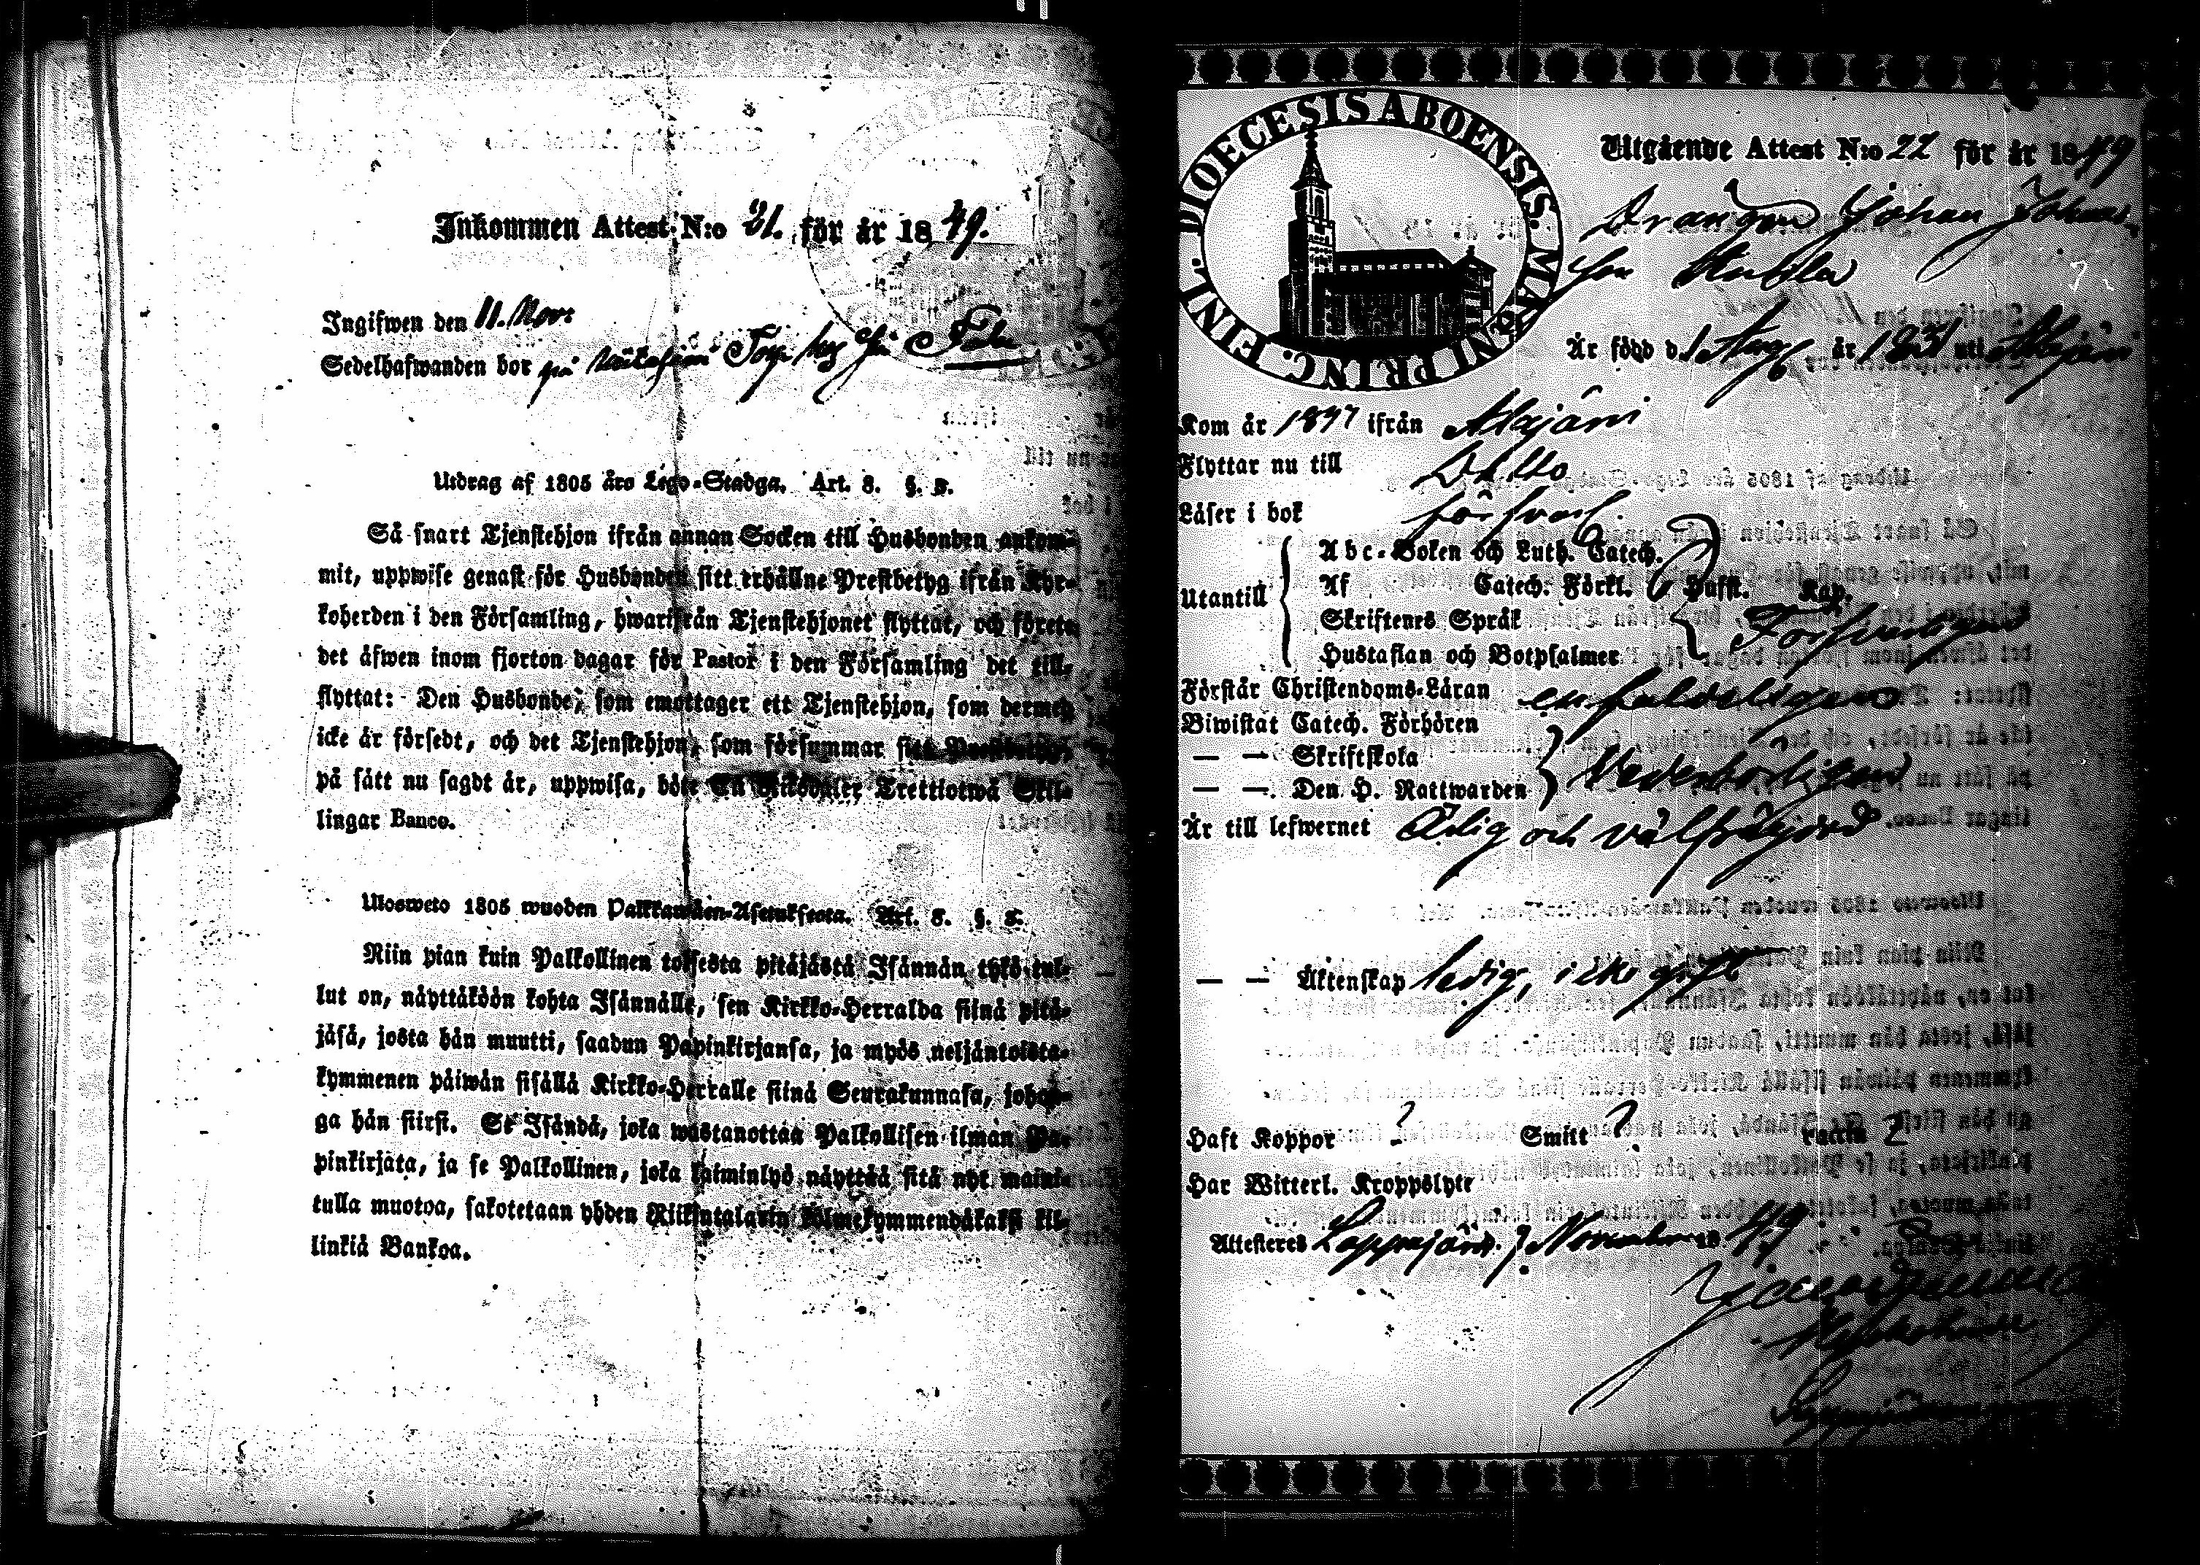 Inkommen Attest N:o 31. för år 1849.
Ingifwen den 11. Nov:
Sedelhafwanden bor på
Utdrag af 1805 års Lego-Stadga. Art. 3. §. 5.
Så snart Tjenstehjon ifrån annan Socken till Husbonden ankom-
mit, uppwise genast för Husbonden sitt erhållne Prestbetyg ifrån Kyr-
koherden i den Församling, hwarifrån Tjenstehjonet flyttat, och förete
det äfwen inom fjorton dagar för Pastor i den Församling det till-
flyttat: Den Husbonde, som emottager ett Tjenstehjon, som dermed
icke är försedt, och det Tjenstehjon, som försummar sitt Prestbetyg,
på sätt nu sagdt är, uppwisa, böte En Riksdaler Trettiotwå Skil-
lingar Banco.
Ulosweto 1805 wuoden Palkkawäen-Asetuksesta. Art. 3. §. 5.
Niin pian kuin Palkollinen toisesta pitäjästä Isännän tykö tul-
lut on, näyttäköön kohta Isännälle, sen Kirkko-Herralda siinä pitä-
jäsä, josta hän muutti, saadun Papinkirjansa, ja myös neljäntoista-
kymmenen päiwän sisällä Kirkko-Herralle siinä Seurakunnasa, johon-
ga hän siirsi. Se Isändä, joka wastanottaa Palkollisen ilman Pa-
pinkirjata, ja se Palkollinen, joka laiminlyö näyttää sitä nyt maini-
tulla muotoa, sakotetaan yhden Riiksntalarin kolmekymmendäkaksi kil-
linkiä Bankoa.
DIOECESIS ABOENSIS. MAGNI PRINC. FINL.
Utgående Attest N:o 22 för år 1849
Drängen Johan Johans
son
Är född d. 1 Aug, år 1831 uti
Kom år 1847 ifrån Alajärvi
Flyttar nu till Ditto
Läser i bok försvarl.
Utantill
Abc-Boken och Luth. Catech.
Af Catech. Förkl. Hufst. Kap.
Skriftenes Språk
Hustaflan och Botpsalmer
Försvarligen
Förstår Christendoms-Läran enfaldeligen
Biwistat Catech. Förhören
— — Skriftskola
— — Den H. Nattwarden
Vederbörligen
Är till lefwernet Ärlig och välfrägdad
— — Äktenskap ledig, icke gift
Haft Koppor ? Smitt ? Vaccin ?
Har Witterl. Kroppslyte
Attesteres Lappajärvi. 7 November 1849